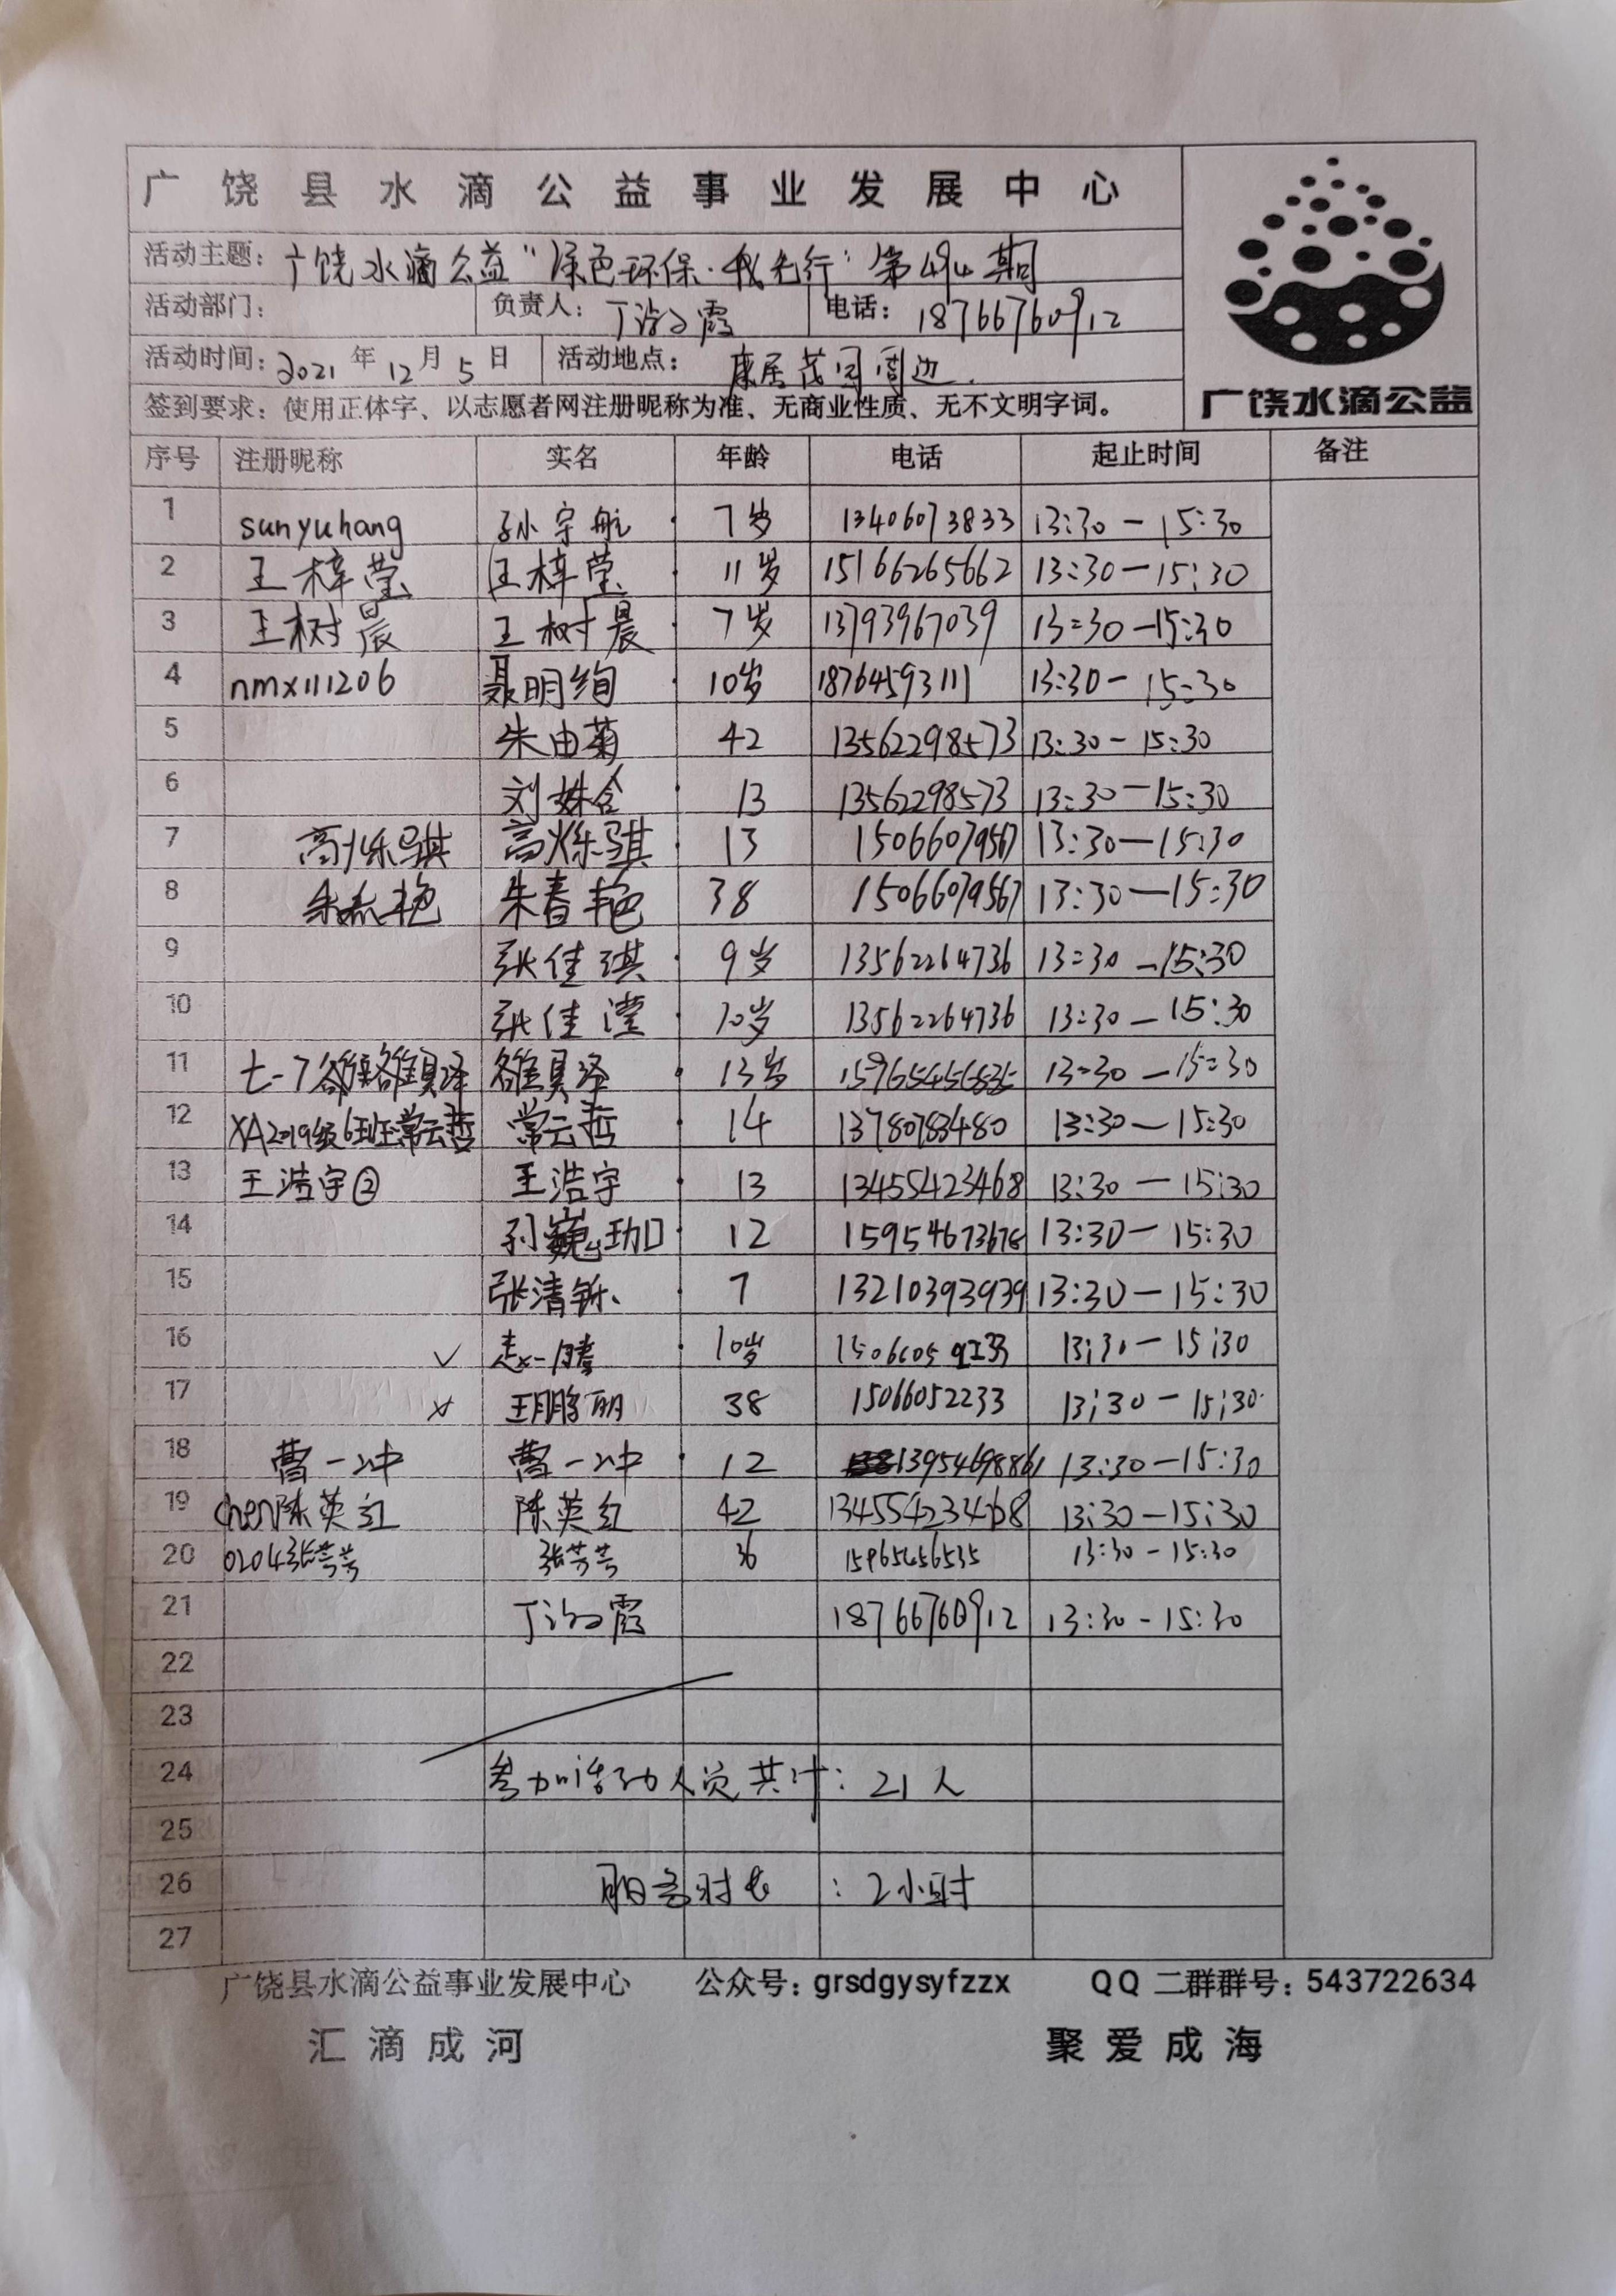 广饶县水滴公益事业发展中心
活动主题：广饶水滴公益“绿色环保·我先行”第 期
活动部门： 负责人：丁 霞 电话：18766760912
活动时间：2021年12月5日 活动地点：康居茂园周边.
签到要求：使用正体字、以志愿者网注册昵称为准、无商业性质、无不文明字词。
广饶水滴公益
序号 注册昵称 实名 年龄 电话 起止时间 备注
1 sunyuhang 孙宇航 7岁 13406073833 13:30-15:30
2 王梓莹 王梓莹 11岁 15166265662 13:30-15:30
3 王树晨 王树晨 7岁 13793967039 13:30-15:30
4 nmx111206 聂明绚 10岁 18764593111 13:30-15:30
5 朱由菊 42 13562298573 13:30-15:30
6 刘姝含 13 13562298573 13:30-15:30
7 高烁骐 高烁骐 13 15066079567 13:30-15:30
8 朱春艳 朱春艳 38 15066079567 13:30-15:30
9 张佳琪 9岁 13562264736 13:30-15:30
10 张佳滢 10岁 13562264736 13:30-15:30
11 七-7 雒昊泽 雒昊泽 13岁 13:30-15:30
12 XA2019级6班常云哲 常云哲 14 13780783480 13:30-15:30
13 王浩宇② 王浩宇 13 13455423468 13:30-15:30
14 孙巍珈 12 15954673678 13:30-15:30
15 张清铄 7 13210393939 13:30-15:30
16 赵一腾 10岁 13:30-15:30
17 王鹏丽 38 15066052233 13:30-15:30
18 曹一冲 曹一冲 12 13954698861 13:30-15:30
19 chen陈英红 陈英红 42 13455423468 13:30-15:30
20 0204张芳芳 张芳芳 36 15965456535 13:30-15:30
21 丁 霞 18766760912 13:30-15:30
22
23
24 参加活动人员共计：21人
25
26 服务时长：2小时
27
广饶县水滴公益事业发展中心 公众号：grsdgysyfzzx QQ 二群群号：543722634
汇滴成河 聚爱成海